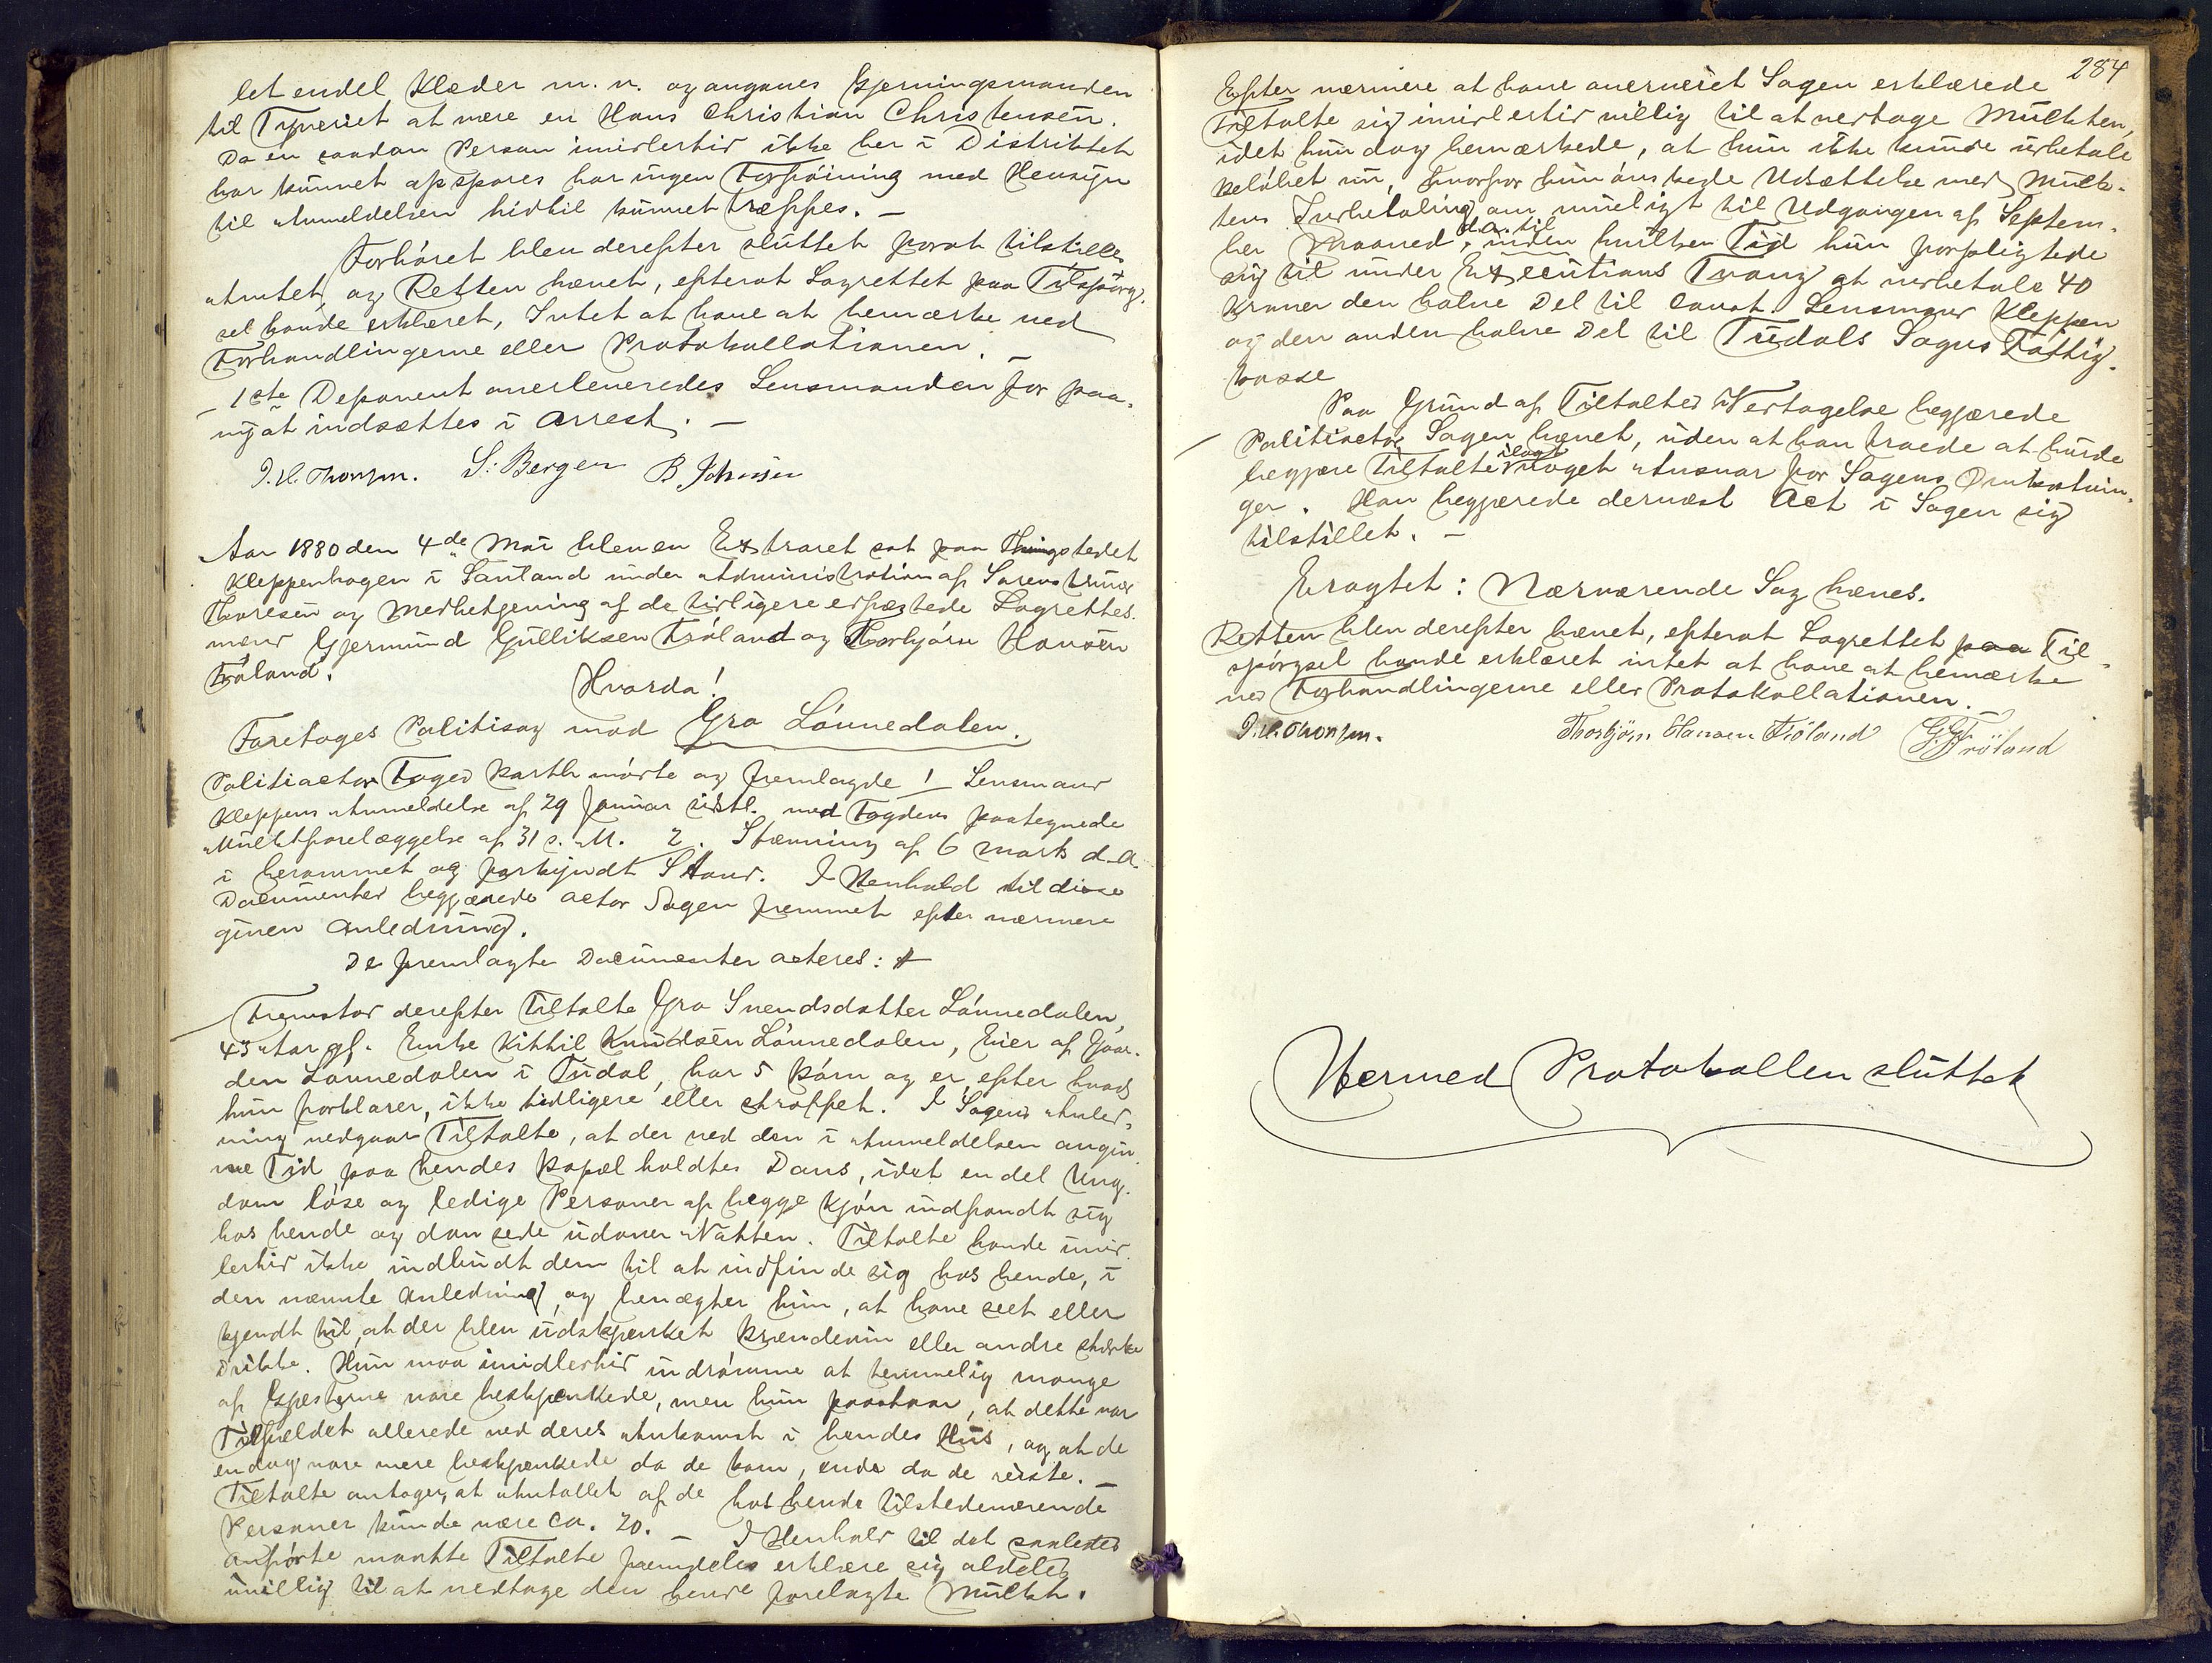 let endel Klæder m. v. og angaves Gjerningsmanden
til Tyveriet at være en Hans Christian Christensen.
Da en saadan Person imidlertid ikke her i Distriktet
har kunnet opspores har ingen Forføining med Hensyn
til Anmeldelsen hidtil kunnet træffes. —
Forhøret blev derefter sluttet forat tilstilles
Amtet og Retten hævet, efterat Lagrettet paa Tilspørg-
sel havde erklæret, Intet at have at bemærke ved
Forhandlingerne eller Protokollationen. —
— 1ste Deponent overleveredes Lensmanden for paa-
nyat indsættes i Arrest. —
J. H. Thomsen. S. Bergen B. Johnsen
Aar 1880 den 4de Mai blev en Extraret sat paa Thingstedet
Kleppenhagen i Sauland under Administration af Sorenskriver
Thoresen og Medbetjening af de tidligere edfæstede Lagrettes-
mænd Gjermund Gulliksen Frøland og Thorbjørn Hansen
Frøland.
Hvorda!
Foretoges Politisag mod Gro Lønnedalen.
Politiactor Foged Barth mødte og fremlagde 1 Lensmand
Kleppens Anmeldelse af 29 Januar sidstl. med Fogdens paategnede
Mulktforelæggelse af 31 s. M. 2. Stævning af 6 Marts d. A.
i berammet og forkyndt Stand. I Henhold til disse
Documenter begjærede Actor Sagen fremmet efter nærmere
given Anledning.
De fremlagte Documenter acteres:
Fremstod derefter Tiltalte Gro Svendsdatter Lønnedalen,
43 Aar gl. Enke Kittil Knudsen Lønnedalen, Eier af Gaar-
den Lønnedalen i Tudal, har 5 Børn og er, efter hvad
hun forklarer, ikke tidligere eller straffet. I Sagens Anled-
ning vedgaar Tiltalte, at der ved den i Anmeldelsen angiv-
ne Tid paa hendes Bopæl holdtes Dans, idet en del Ung-
dom løse og ledige Personer af begge Kjøn indfandt sig
hos hende og dansede udover Natten. Tiltalte havde imid-
lertid ikke indbudt dem til at indfinde sig hos hende, i
den nævnte Anledning, og benægter hun, at have seet eller
kjendt til, at der blev udskjænket Brændeviin eller andre stærke
Drikke. Hun maa imidlertid indrømme at temmelig mange
af Gjesterne vare beskjænkede, men hun paastaar, at dette var
Tilfældet allerede ved deres Ankomst i hendes Hus, og at de
endog vare mere beskjænkede da de kom, end da de reiste. —
Tiltalte antager, at Antallet af de hos hende tilstedeværende
Personer kunde være ca. 20. — I Henhold til det saaledes
anførte maatte Tiltalte fremdeles erklære sig aldeles
uvillig til at vedtage den hende forelagte Mulkt.
284
Efter nærmere at have overveiet Sagen erklærede
Tiltalte sig imidlertid villig til at vedtage Mulkten,
idet hun dog bemærkede, at hun ikke kunde udbetale
Beløbet nu, hvorfor hun ønskede Udsættelse med Mulk-
tens Indbetaling om mueligt til Udgangen af Septem-
ber Maaned d. A. til inden hvilken Tid hun forpligtede
sig til under Executions Tvang at indbetale 40
Kroner den halve Del til const. Lensmand Kleppen
og den anden halve Del til Tudals Sogns Fattig-
kasse
Paa Grund af Tiltaltes Vedtagelse begjærede
Politiactor Sagen hævet, uden at han troede at burde
begjære Tiltalte ilagt noget Ansvar for Sagens Omkostnin-
ger. Han begjærede dernæst Act i Sagen sig
tilstillet. —
Eragtet: Nærværende Sag hæves.
Retten blev derefter hævet, efterat Lagrettet paa Til-
spørgsel havde erklæret intet at have at bemærke
ved Forhandlingerne eller Protokollationen. —
J. H. Thomsen. Thorbjørn Hansen Frøland G. G. Frøland
Hermed Protokollen sluttet